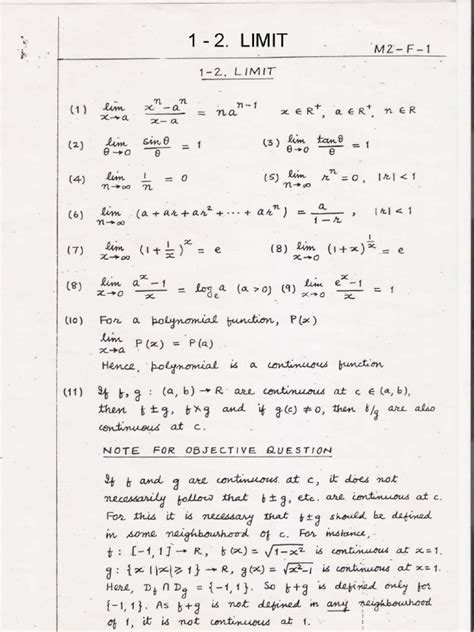 1 - 2. LIMIT
M2-F-1
1-2. LIMIT
(1) lim x→a (xⁿ-aⁿ)/(x-a) = naⁿ⁻¹ x ∈ R⁺, a ∈ R⁺, n ∈ R
(2) lim θ→0 sinθ/θ = 1 (3) lim θ→0 tanθ/θ = 1
(4) lim n→∞ 1/n = 0 (5) lim n→∞ rⁿ = 0, |r| < 1
(6) lim n→∞ (a + ar + ar² + ··· + arⁿ) = a/(1-r), |r| < 1
(7) lim x→∞ (1 + 1/x)ˣ = e (8) lim x→0 (1+x)^(1/x) = e
(8) lim x→0 (aˣ-1)/x = logₑa (a > 0) (9) lim x→0 (eˣ-1)/x = 1
(10) For a polynomial function, P(x)
lim x→a P(x) = P(a)
Hence, polynomial is a continuous function
(11) If f, g : (a, b) → R are continuous at c ∈ (a, b),
then f ± g, f×g and if g(c) ≠ 0, then f/g are also
continuous at c.
NOTE FOR OBJECTIVE QUESTION
If f and g are continuous at c, it does not
necessarily follow that f ± g, etc. are continuous at c.
For this it is necessary that f ± g should be defined
in some neighbourhood of c. For instance,
f : [-1, 1] → R, f(x) = √(1-x²) is continuous at x = 1.
g : {x | |x| ≥ 1} → R, g(x) = √(x²-1) is continuous at x = 1.
Here, D_f ∩ D_g = {-1, 1}. So f+g is defined only for
{-1, 1}. As f+g is not defined in any neighbourhood
of 1, it is not continuous at 1.